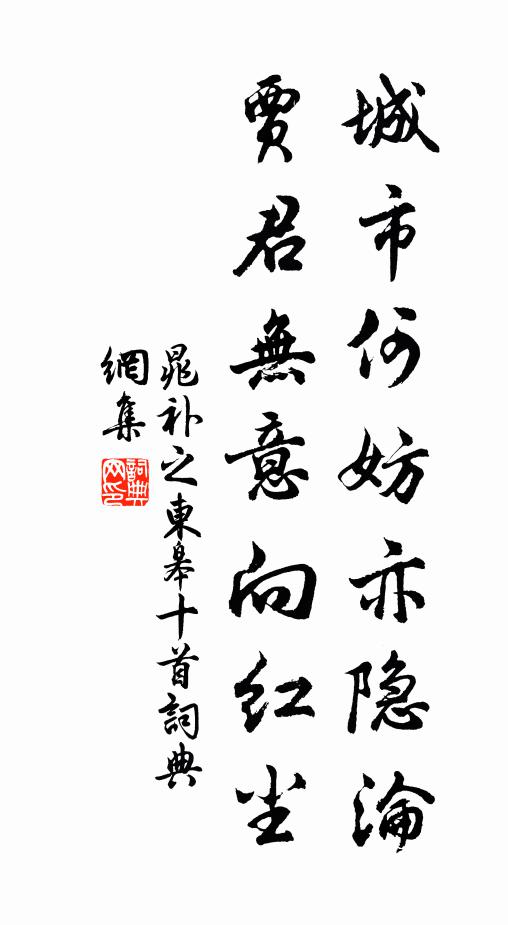 城市何妨亦隐淪
賈君無意向红尘
晁补之東皋十首詞典
網集
詞典網印